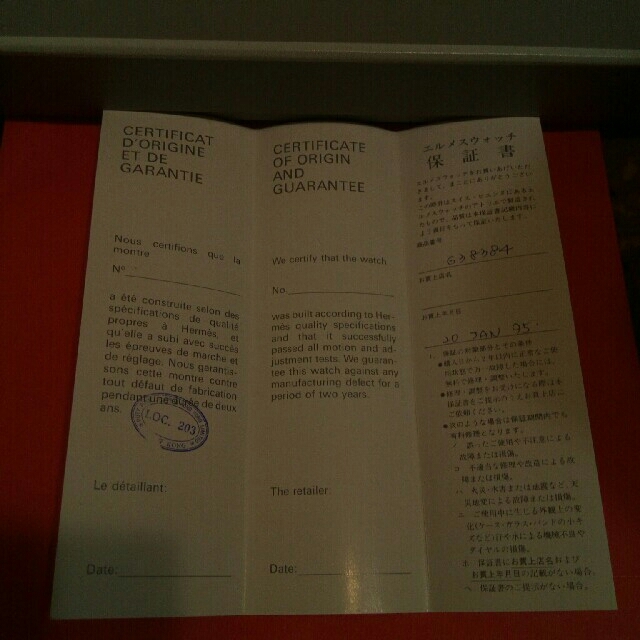 CERTIFICAT
D'ORIGINE
ET DE
GARANTIE
Nous certifions que la
montre
Nº
a été construite selon des
spécifications de qualité
propres à Hermès, et
qu'elle a subi avec succès
les épreuves de marche et
de réglage. Nous garantis-
sons cette montre contre
tout défaut de fabrication
pendant une durée de deux
ans.
LOC. 203
Le détaillant:
Date:
CERTIFICATE
OF ORIGIN
AND
GUARANTEE
We certify that the watch
No.
was built according to Her-
mès quality specifications
and that it successfully
passed all motion and ad-
justment tests. We guaran-
tee this watch against any
manufacturing defect for a
period of two years.
The retailer:
Date:
エルメスウォッチ
保証書
商品番号
638384
お買上店名
お買上年月日
20 JAN 95
無料で修理・調整いたします。
ご依頼ください。
有料修理となります。
故障または損傷。
障または損傷。
ダイヤルの損傷。
ホ 保証書にお買上店名および
お買上年月日の記載がない場合。
ヘ 保証書のご提示がない場合。